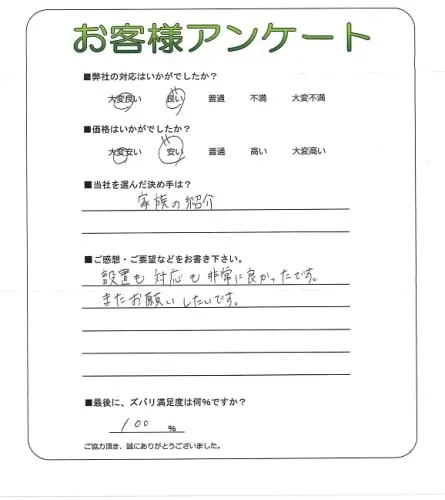 お客様アンケート
■弊社の対応はいかがでしたか？
大変良い 良い 普通 不満 大変不満
■価格はいかがでしたか？
大変安い 安い 普通 高い 大変高い
■当社を選んだ決め手は？
家族の紹介
■ご感想・ご要望などをお書き下さい。
設置も対応も非常に良かったです。
またお願いしたいです。
■最後に、ズバリ満足度は何％ですか？
100 %
ご協力頂き、誠にありがとうございました。